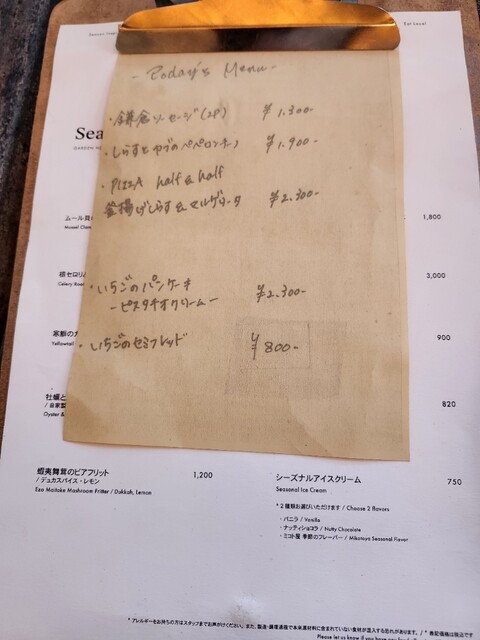 Eat Local
- Today's Menu -
・鎌倉ソーセージ(2P) ¥1.300-
・しらすとカブのペペロンチーノ ¥1.900-
・PIZZA half & half
釜揚げしらす & マルゲリータ ¥2.300-
・いちごのパンケーキ
-ピスタチオクリーム- ¥2.300-
・いちごのセミフレッド ¥800-
Sea
ムール貝
Mussel
1,800
根セロリ
Celery
3,000
寒鰤の
Yellowtail
900
牡蠣と
/ 自家製
Oyster &
820
蝦夷舞茸のビアフリット 1,200
/ デュカスパイス・レモン
Ezo Maitake Mashroom Fritter / Dukkah, Lemon
シーズナルアイスクリーム 750
Seasonal Ice Cream
*2種類お選びいただけます / Choose 2 flavors
・バニラ / Vanilla
・ナッティショコラ / Nutty Chocolate
・ミコト屋 季節のフレーバー / Mikotoya Seasonal Flavor
*アレルギーをお持ちの方はスタッフまでお声がけください。また、製造・調理過程で本来原材料に含まれていない食材が混入する恐れがあります。/ *表記価格は税込です
Please let us know if you have any food